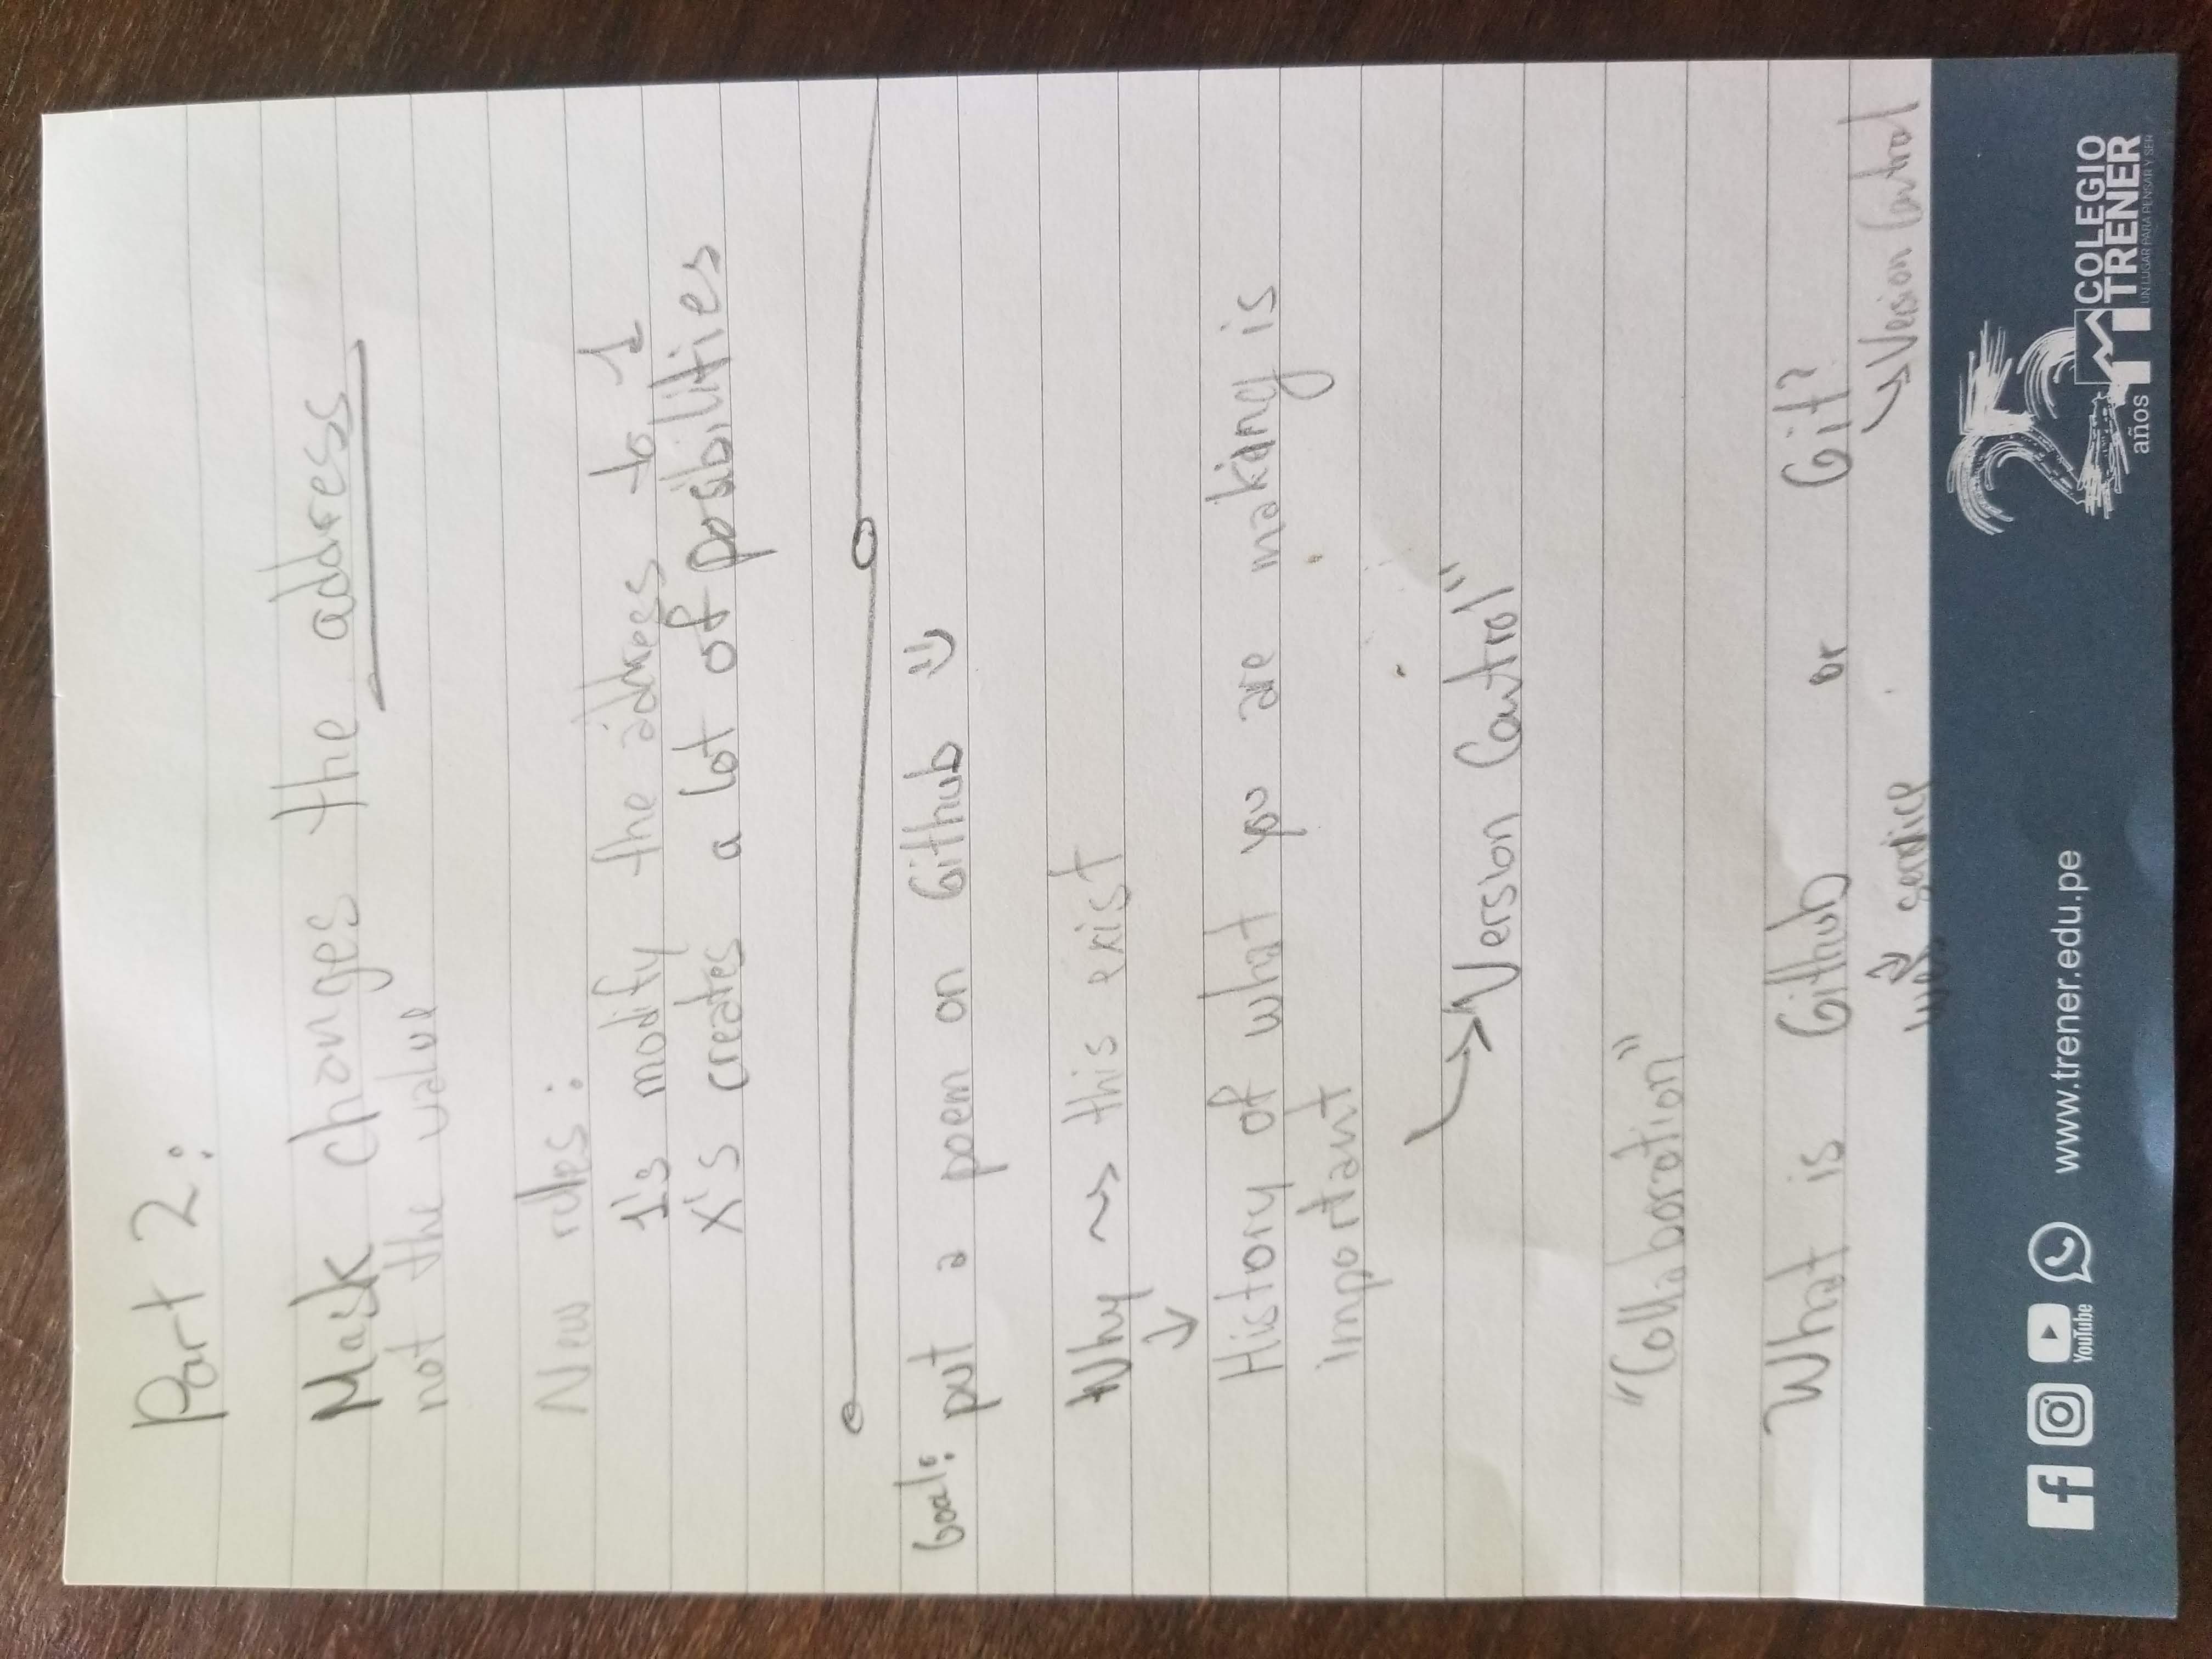 Part 2:
Mask changes the address
not the value
New rules:
1's modify the address to 1
X's creates a lot of posibilities
Goal: put a poem on Github
Why ~> this exist
History of what you are making is
important
"Version Control"
"Collaboration"
What is Github or Git?
web service
Version Control
YouTube
www.trener.edu.pe
25
años
COLEGIO
TRENER
UN LUGAR PARA PENSAR Y SER